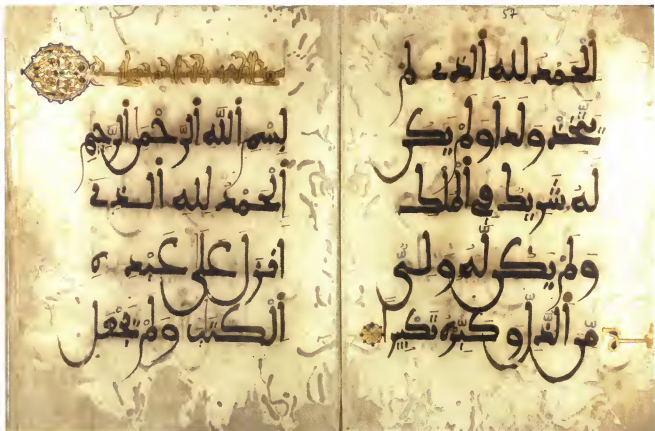 57
اَلْحَمْدُ لِلهِ اِلذِى لَمْ
يَتَّخِذْ وَلَداً وَلَمْ يَكُن
لَّهُ شَرِيكٌ فِى اِلْمُلْكِ
وَلَمْ يَكُن لَّهُ وَلِىٌّ
مِّنَ اَلذُّلِّ وَكَبِّرْهُ تَكْبِيراً
بِسْمِ اِللهِ اِلرَّحْمٰنِ اِلرَّحِيمِ
اَلْحَمْدُ لِلهِ اِلذِى
أَنزَلَ عَلَى عَبْدِهِ
اِلْكِتَٰبَ وَلَمْ يَجْعَل